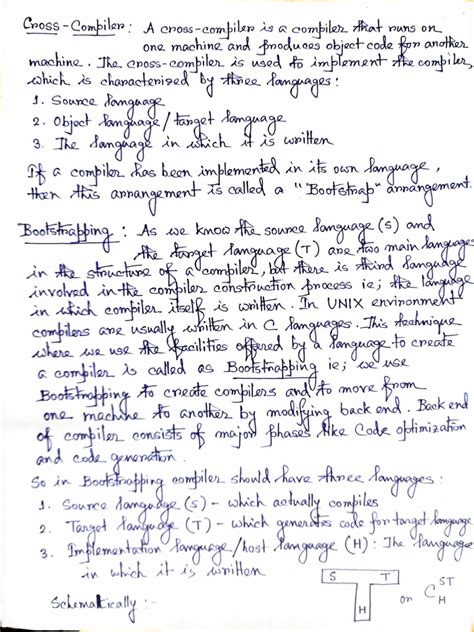 Cross-Compiler: A cross-compiler is a compiler that runs on
one machine and produces object code for another
machine. The cross-compiler is used to implement the compiler,
which is characterized by three languages:
1. Source language
2. Object language/target language
3. The language in which it is written
If a compiler has been implemented in its own language,
then this arrangement is called a "Bootstrap" arrangement.
Bootstrapping: As we know the source language (s) and
the target language (T) are two main languages
in the structure of a compiler, but there is third language
involved in the compiler construction process ie; the language
in which compiler itself is written. In UNIX environment
compilers are usually written in C languages. This technique
where we use the facilities offered by a language to create
a compiler is called as Bootstrapping ie; we use
Bootstrapping to create compilers and to move from
one machine to another by modifying back end. Back end
of compiler consists of major phases like Code optimization
and code generation.
So in Bootstrapping compiler should have three languages:
1. Source language (s) - which actually compiles
2. Target language (T) - which generates code for target language
3. Implementation language/host language (H): The language
in which it is written
Schematically :-
S T
H
or C ST H